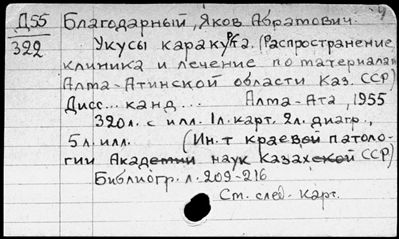 Д55 Благодарный, Яков Абратович.
322 Укусы каракурта. (Распространение,
клиника и лечение по материалам
Алма-Атинской области Каз. ССР)
Дисс... канд... Алма-Ата, 1955
320 л. с илл. 1 л. карт. 2 л. диагр.,
5 л. илл. (Ин-т краевой патоло-
гии Академии наук Казахской ССР)
Библиогр. л. 209-216
См. след. карт.